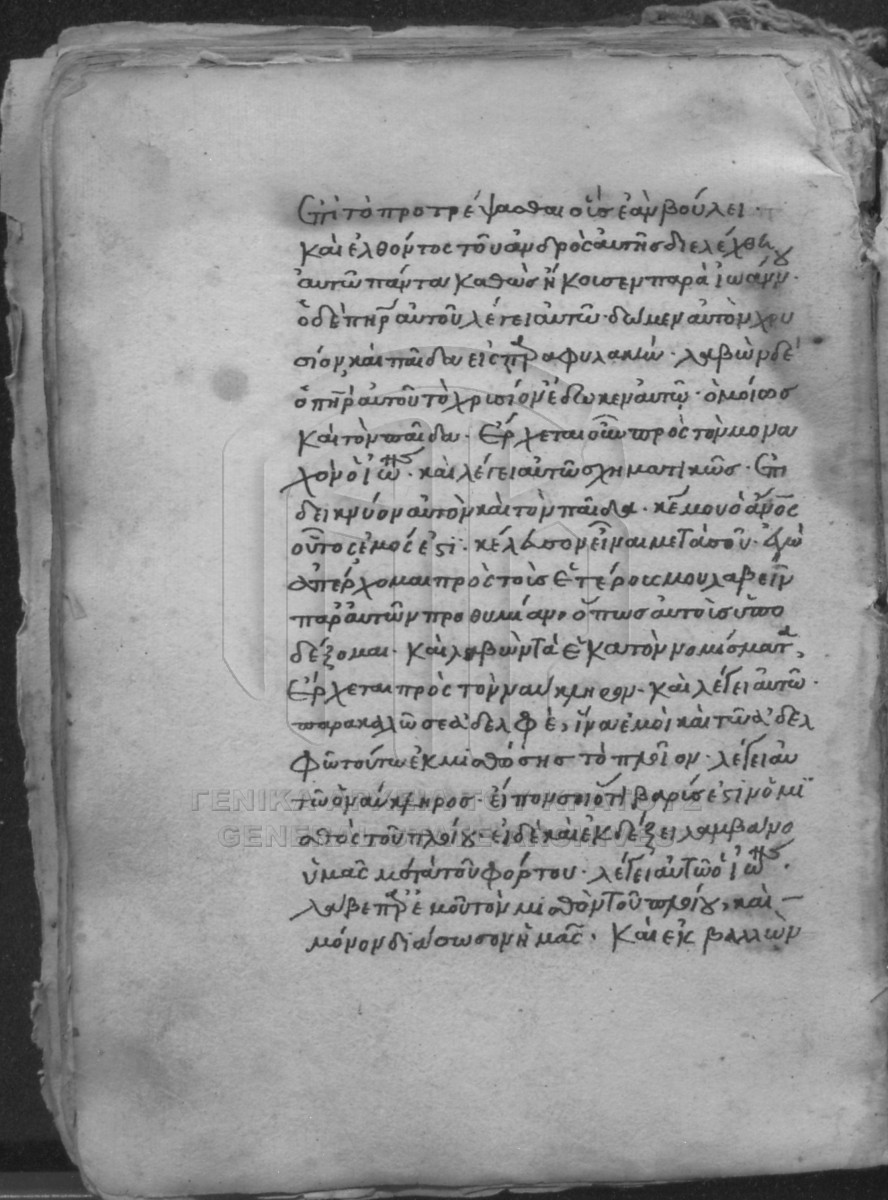 ἐπὶ τὸ προτρέψασθαι οἷς ἐὰν βούλει·
καὶ ἐλθόντος τοῦ ἀνδρὸς αὐτῆς διελέχθη
αὐτῷ πάντα καθὼς ἤκουσεν παρὰ ἰωάνν·
ὁ δὲ πηρ αὐτοῦ λέγει αὐτῷ· δῶμεν αὐτὸν χρυ
σίον, καὶ παῖδα εἰς παραφυλακήν· λαβὼν δὲ
ὁ πηρ αὐτοῦ τὸ χρισίον ἔδωκεν αὐτῷ· ὁμοίως
καὶ τὸν παῖδα· ἔρχεται οὖν πρὸς τὸν μονα
χὸν ὁ ἰω· καὶ λέγει αὐτῷ σχηματικῶς· ἐπι
δεικνύον αὐτὸν καὶ τὸν παῖδα· κε μου ὁ ανος
οὗτος ἐμός ἐστι· κέλευσον εἶναι μετά σου· ἐγὼ
ἀπέρχομαι πρὸς τοὶς ἑτέροις μου λαβεῖν
παρ' αὐτῶν προθυμίαν, ὅπως αὐτοὶς ὑπο
δέξομαι· καὶ λαβὼν τὰ ἑκατὸν νομίσματα,
ἔρχεται πρὸς τὸν ναύκληρον· καὶ λέγει αὐτῷ·
παρακαλῶ σε ἀδελφὲ, ἵνα ἐμοὶ καὶ τῶ ἀδελ
φῶ τούτω ἐκμισθόσης τὸ πλοῖον· λέγει αὐ
τῷ ὁ ναύκληρος· εἶπον σοι ὅτι βαρίς ἐστιν ὁ μι
σθὸς τοῦ πλοίου· εἰ δὲ καὶ ἐκδέξει λαμβάνο
ὑμᾶς μετὰ τοῦ φόρτου· λέγει αὐτῷ ὁ ἰω·
λάβε παρ' ἐμοῦ τὸν μισθὸν τοῦ πλοίου, καὶ –
μόνον διάσωσον ἡμᾶς· καὶ ἐκβαλλὼν